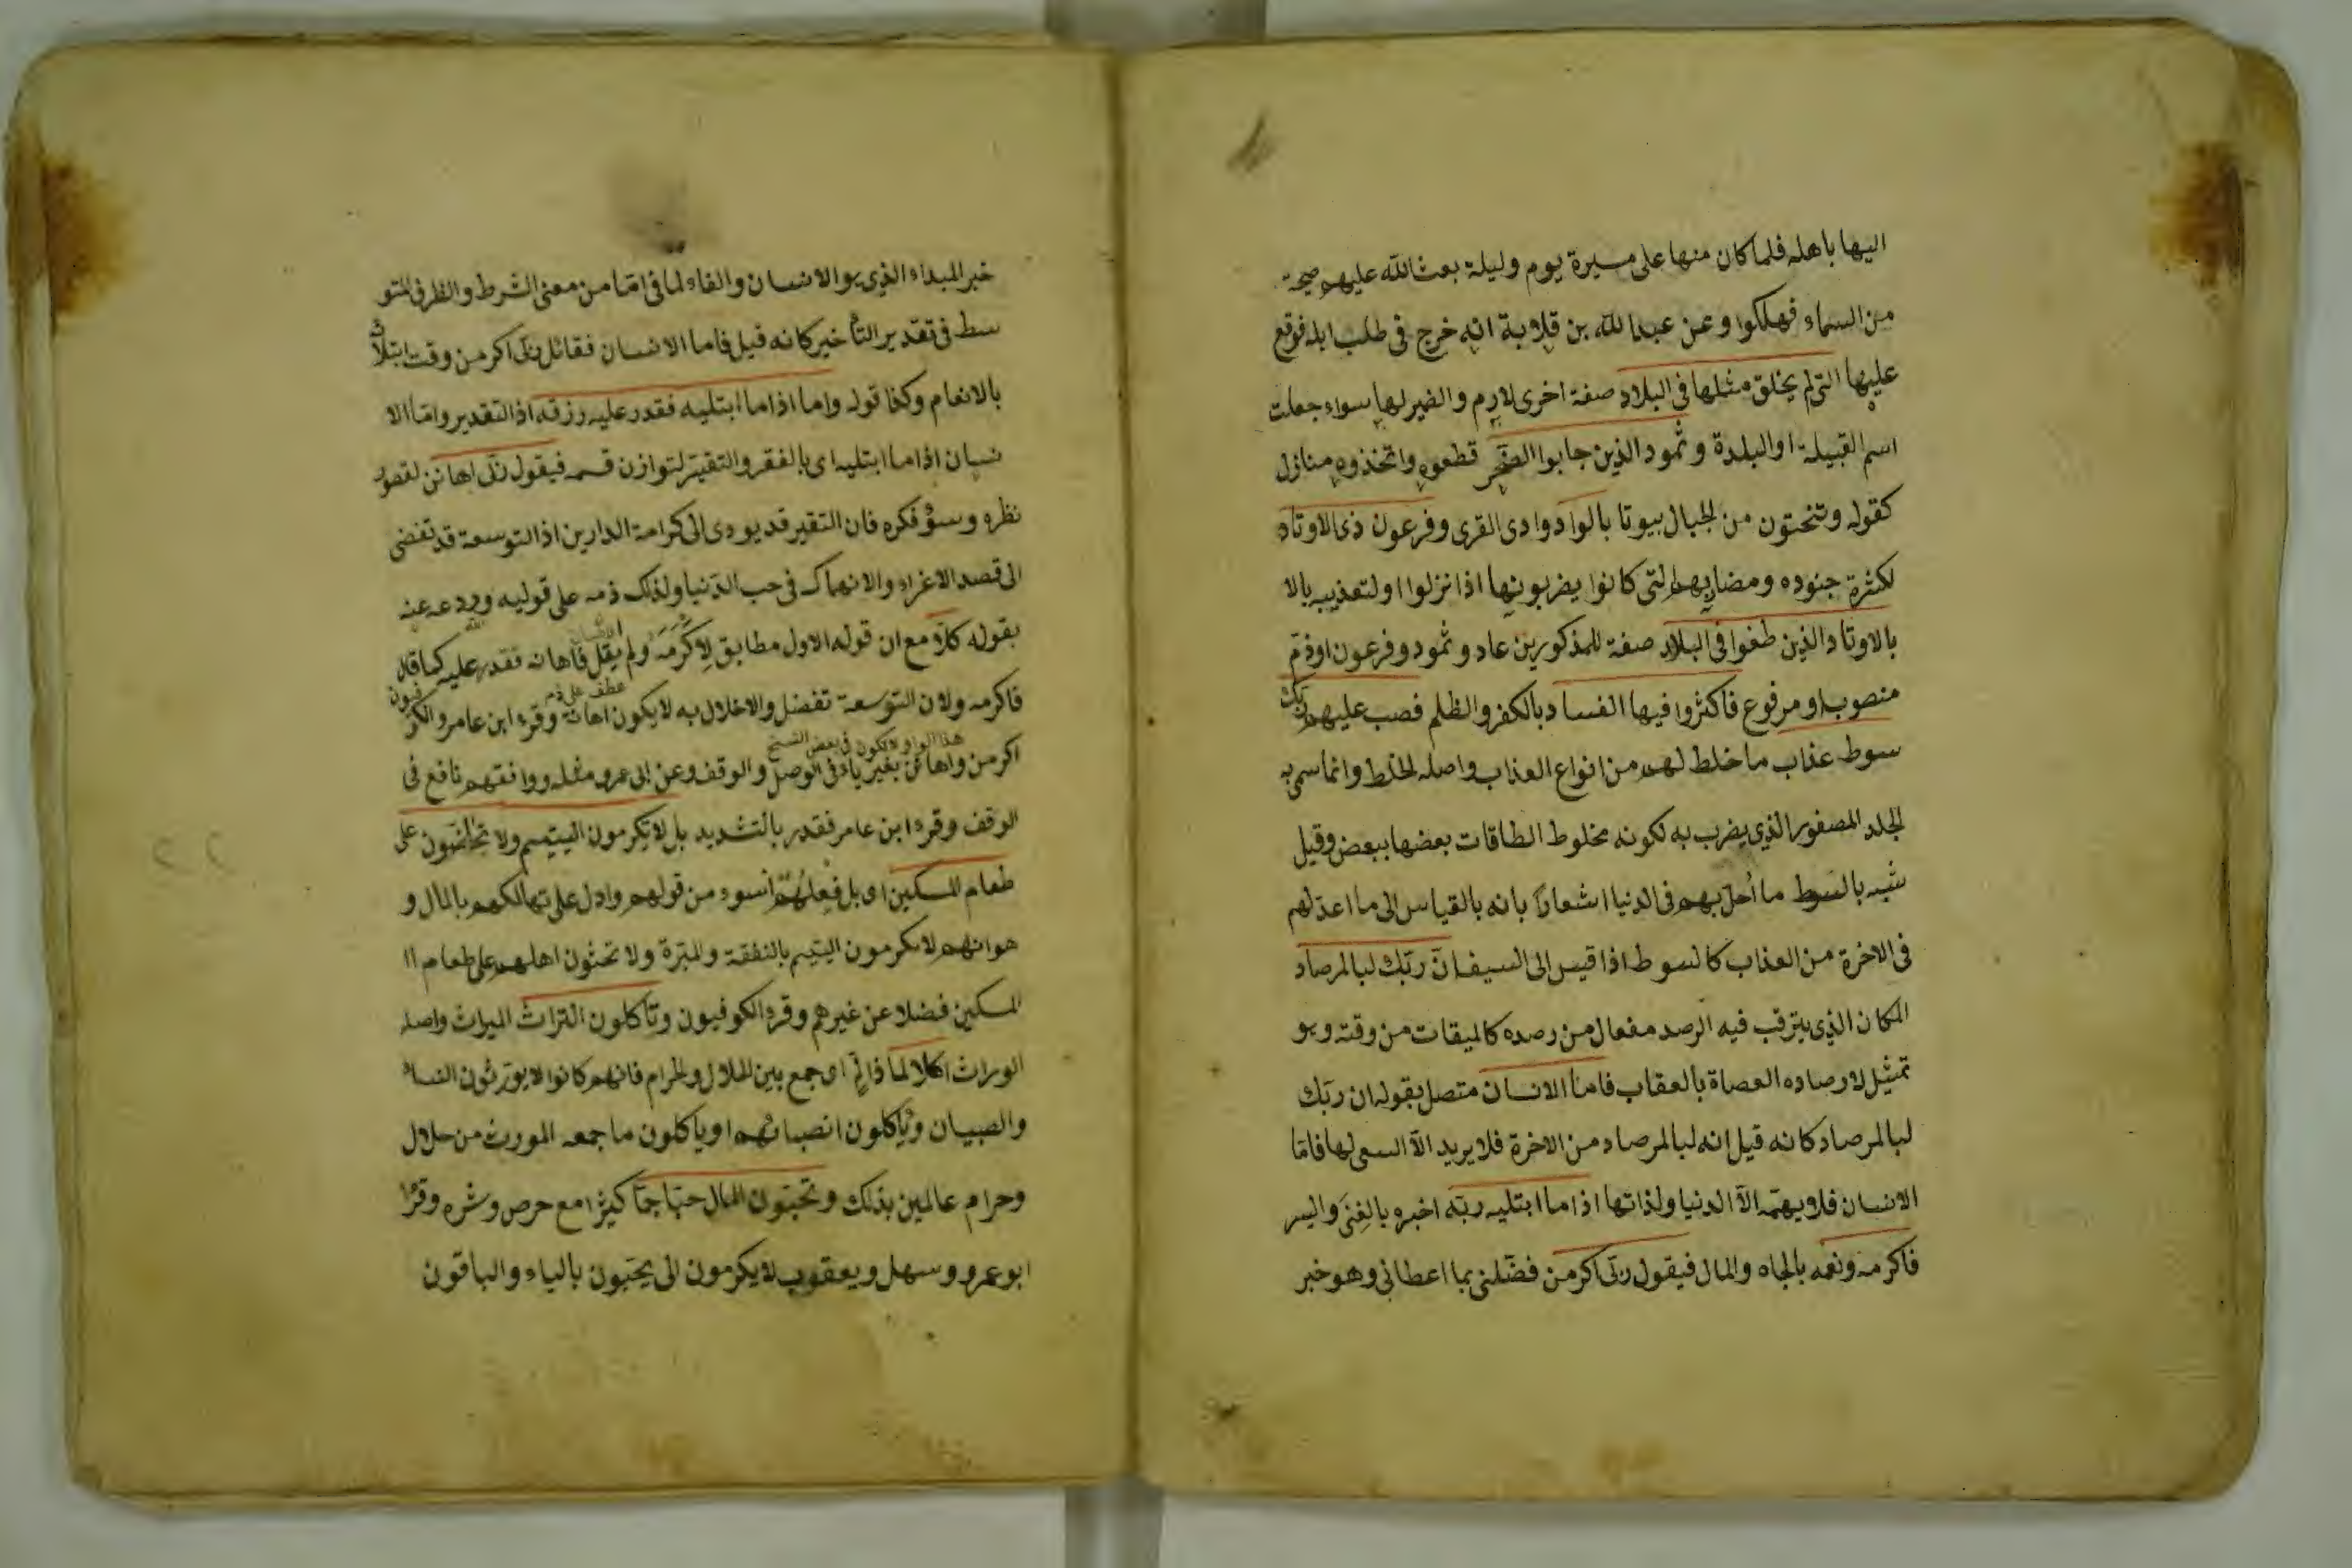 اليها باهله فلما كان منها على مسيرة يوم وليلة بعث الله عليهم صيحة
من السماء فهلكوا وعن عبدالله بن قلابة انه خرج فى طلب ابله فوقع
عليها التى لم يخلق مثلها فى البلاد صفة اخرى لارم والضير لها سواء جعلت
اسم القبيلة او البلدة وثمود الذين جابوا الصخر قطعوه واتخذوه منازل
كقوله وتنحتون من الجبال بيوتا بالواد وادى القرى وفرعون ذى الاوتاد
لكثرة جنوده ومضاربهم التى كانوا يضربونها اذا نزلوا او لتعذيبه بالا
بالاوتاد الذين طغوا فى البلاد صفة للمذكورين عاد وثمود وفرعون او ذم
منصوب او مرفوع فاكثروا فيها الفساد بالكفر والظلم فصب عليهم ربك
سوط عذاب ما خلط لهم من انواع العذاب واصله الخلط وانما سمى به
الجلد المصفور الذى يضرب به لكونه مخلوط الطاقات بعضها ببعض وقيل
شبه بالسوط ما احل بهم فى الدنيا اشعارا بانه بالقياس الى ما اعد لهم
فى الاخرة من العذاب كالسوط اذا قيس الى السيف ان ربك لبالمرصاد
المكان الذى يترقب فيه الرصد مفعال من رصده كالميقات من وقته وهو
تمثيل لارصاده العصاة بالعقاب فاما الانسان متصل بقوله ان ربك
لبالمرصاد كانه قيل انه لبالمرصاد من الاخرة فلا يريد الا السعى لها فاما
الانسان فلا يهمه الا الدنيا ولذاتها اذا ما ابتليه ربه اخبره بالغنى واليسر
فاكرمه ونعمه بالجاه والمال فيقول ربى اكرمن فضلنى بما اعطانى وهو خبر
خبر المبداء الذى هو الانسان والفاء لما فى اما من معنى الشرط والظرف المتو
سط فى تقدير التأخير كانه قيل فاما الانسان فقائل ربى اكرمن وقت ابتلائه
بالانعام وكذا قوله واما اذا ما ابتليه فقدر عليه رزقه اذ التقدير واما الا
نسان اذا ما ابتليه اى بالفقر والتقتير لتوازن قسمه فيقول ربى اهانن لقصور
نظره وسؤ فكره فان التقير قد يودى الى كرامة الدارين اذ التوسعة قد تفضى
الى قصد الاغراء والانهماك فى حب الدنيا ولذلك ذمه على قوليه وردعه عنه
بقوله كلا مع ان قوله الاول مطابق لاكرمه ولم يقل فاهانه فقدر عليه كما قال
فاكرمه ولان التوسعة تفضل والاخلال به لا يكون اهانة وقرء ابن عامر والكو
عطف على ذم
فيون
هذا الواو لا يكون فى بعض النسخ
اكرمن واهانن بغير ياء فى الوصل والوقف وعن ابى عمرو مثله ووافقهم نافع فى
الوقف وقرء ابن عامر فقدر بالتشديد بل لا تكرمون اليتيم ولا تحاضون على
طعام المسكين اى بل فعلهم اسوء من قولهم وادل على تهالكهم بالمال و
هو انهم لا يكرمون اليتيم بالنفقة والمبرة ولا تحثون اهلهم على طعام ا
المسكين فضلا عن غيرهم وقرء الكوفيون وتأكلون التراث الميراث واصله
الوراث اكلا لما ذا لم اى جمع بين الحلال والحرام فانهم كانوا لا يورثون النساء
والصبيان ويأكلون انصبائهم او ياكلون ما جمعه المورث من حلال
وحرام عالمين بذلك وتحبون المال حبا جما كثيرا مع حرص وشره وقرء
ابو عمرو وسهل ويعقوب لا يكرمون الى يحبون بالياء والباقون